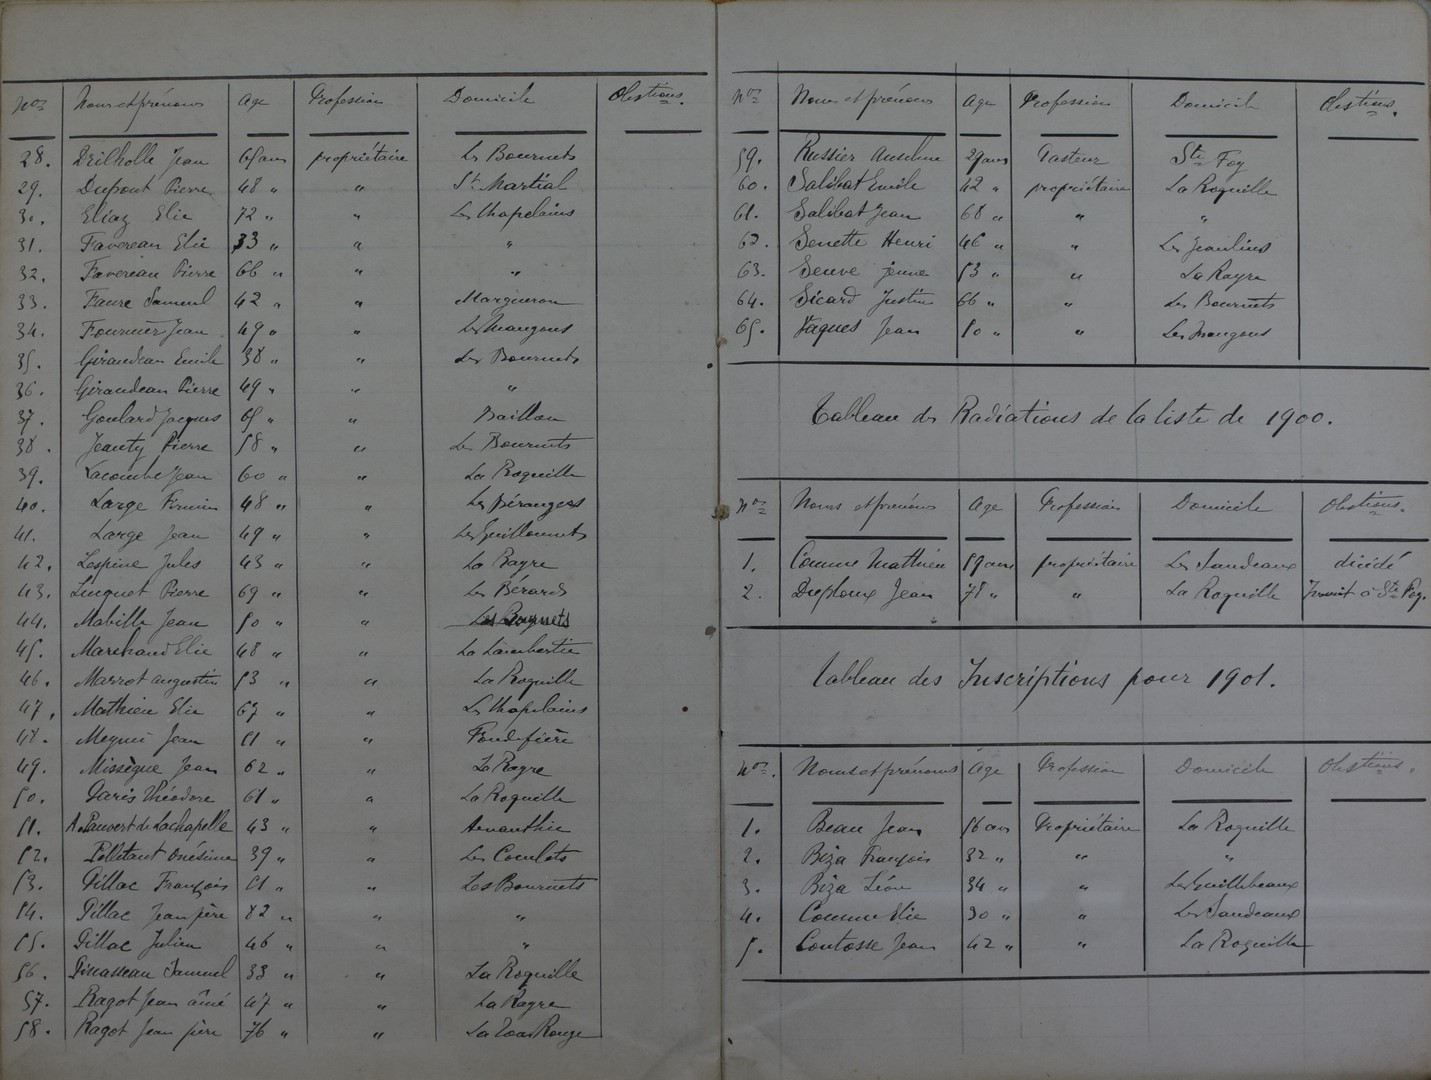 Nos Noms et prénoms Age Profession Domicile Obstions.
28. Deilholle Jean 65 ans propriétaire Les Bournets
29. Dupont Pierre 48 " " St Martial
30. Eliaz Elie 72 " " Les Chapelains
31. Favereau Elie 33 " " "
32. Favereau Pierre 66 " " "
33. Faure Samuel 42 " " Margueron
34. Fournier Jean 49 " " Les Mangons
35. Giraudeau Emile 38 " " Les Bournets
36. Giraudeau Pierre 49 " " "
37. Goulard Jacques 65 " " Baillan
38. Jeanty Pierre 58 " " Les Bournets
39. Lacombe Jean 60 " " La Roquille
40. Large Firmin 48 " " Les Bérangers
41. Large Jean 49 " " Les Guillonnets
42. Lespine Jules 43 " " La Rayre
43. Linguet Pierre 69 " " Les Bérards
44. Mabille Jean 50 " " Les
45. Marchand Elie 48 " " La Lambertie
46. Marrot Augustin 53 " " La Roquille
47. Mathieu Elie 67 " " Les Chapelains
48. Meynié Jean 51 " " Fondefière
49. Missègue Jean 62 " " La Rayre
50. Paris Théodore 61 " " La Roquille
51. A. Pauvert de Lachapelle 43 " " Amanthie
52. Pellitant Onésime 39 " " Les Coulets
53. Pillac François 51 " " Les Bournets
54. Pillac Jean père 82 " " "
55. Pillac Julien 46 " " "
56. Piscasseau Samuel 33 " " La Roquille
57. Ragot Jean aîné 47 " " La Rayre
58. Ragot Jean père 76 " " La Eau Rouge
Nos Noms et prénoms Age Profession Domicile Obstions.
59. Russier Anselme 29 ans Pasteur Ste Foy
60. Salibat Emile 42 " propriétaire La Roquille
61. Salibat Jean 68 " " "
62. Senette Henri 46 " " Les Jeanlins
63. Seuve jeune 53 " " La Rayre
64. Sicard Justin 66 " " Les Bournets
65. Vaques Jean 50 " " Les Mangons
Tableau des Radiations de la liste de 1900.
Nos Noms et prénoms Age Profession Domicile Obstions.
1. Comme Mathieu 59 ans propriétaire Les Jandeaux décédé
2. Duploux Jean 78 " " La Roquille Inscrit à Ste Foy.
Tableau des Inscriptions pour 1901.
Nos. Noms et prénoms Age Profession Domicile Obstions.
1. Beau Jean 56 ans Propriétaire La Roquille
2. Biza François 32 " " "
3. Biza Léon 34 " " Les Guillebeaux
4. Comme Elie 30 " " Les Jandeaux
5. Contasse Jean 42 " " La Roquille